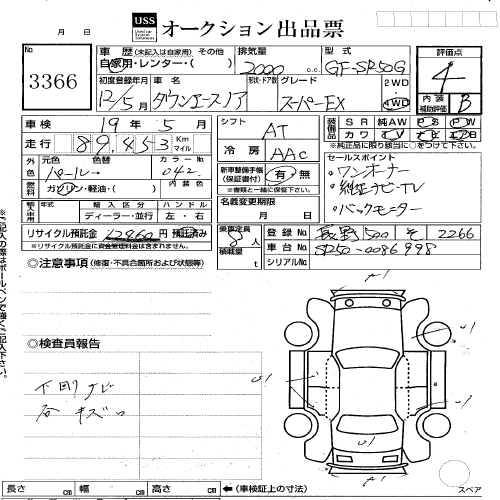 月 日
USS オークション出品票
No 3366
車歴(未記入は自家用) その他
自家用・レンター・( )
排気量
2000 cc
型式
GF-SR50G
評価点
4
内装 補助評価 B
初度登録年月
12/5月
車名
タウンエースノア
形状・ドア数
グレード
スーパーEX
2WD
4WD
車検 19年 5月
走行 89,453 Km マイル
シフト
AT
冷房
AAC
装備品
S R 純AW P S P W
カワ T V エB
*純正品に限り該当に○をつけて下さい。
外色 元色 色替
パール
カラーNo
042
内装色
燃料 ガソリン・軽油・( )
新車整備手帳(保証書付) 有・無
※書類と一緒に保管下さい。
セールスポイント
・ワンオーナー
・純正ナビ・TV
・バックモニター
輸入車用 輸入区分 ハンドル
ディーラー・並行 左・右
名義変更期限
月 日
リサイクル預託金 12960円 預託済み
※リサイクル預託金に資金管理料金は含まれません。
乗車定員 8人
積載量 t
登録No 長野 500 そ 2266
車台No SR50-0086998
シリアルNo
◎注意事項(修復・不具合箇所および状態等)
◎検査員報告
下廻サビ
谷キズ
A1
U1
U1
U1
A1
長さ cm 幅 cm 高さ cm ←(車検証上の寸法)
スペア
※ご記入の際はボールペンで強くご記入下さい。